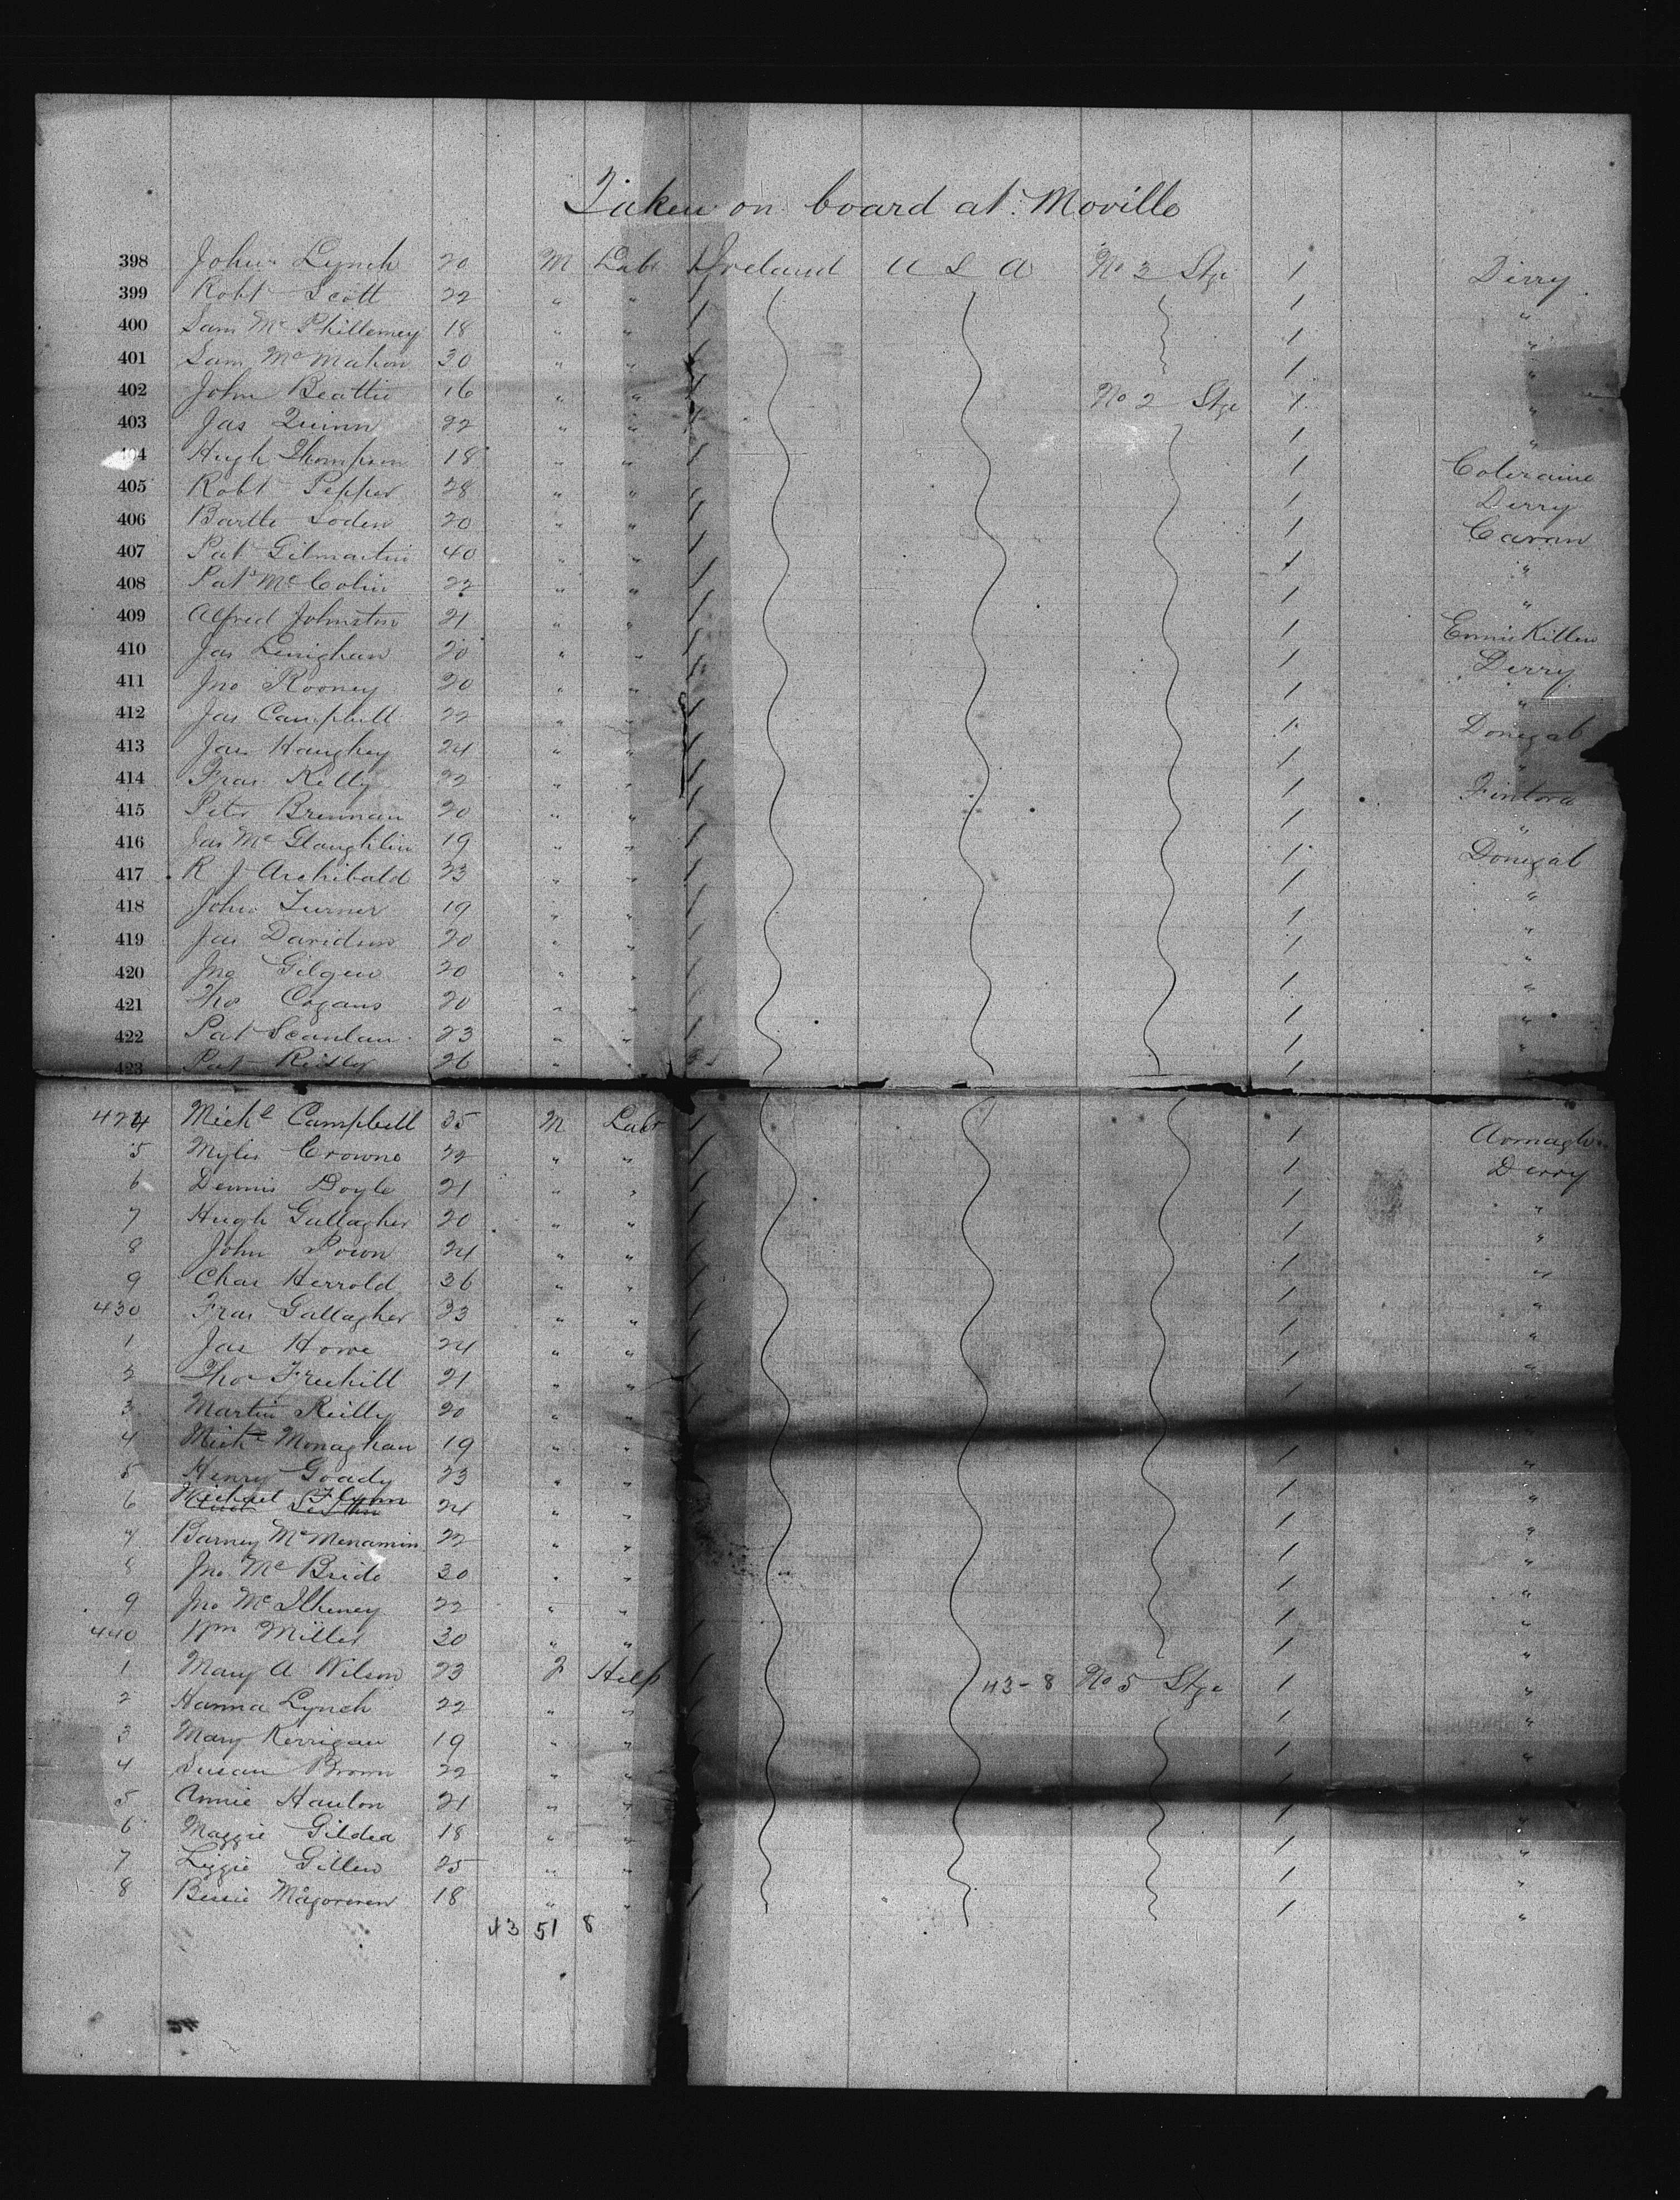 Taken on board at Moville
398 John Lynch 20 M Labr Ireland U S A No 3 Stge 1 Derry
399 Robt Scott 22 " " 1 "
400 Sam Mc Phillemey 18 " " 1 "
401 Sam McMahon 30 " " 1 "
402 John Beattie 16 " " No 2 Stge 1 "
403 Jas Quinn 22 " " 1 "
404 Hugh Thompson 18 " " 1 Coleraine
405 Robt Pepper 28 " " 1 Derry
406 Bartle Loden 20 " " 1 Cavan
407 Pat Gilmartin 40 " " 1 "
408 Pat Mc Colin 22 " " 1 "
409 Alfred Johnston 21 " " 1 EnnisKillen
410 Jas Lenighan 20 " " 1 Derry
411 Jno Rooney 20 " " 1 "
412 Jas Campbell 22 " " 1 Donegal
413 Jas Haughey 24 " " 1 "
414 Fras Kelly 22 " " 1 Fintona
415 Peter Brennan 20 " " 1 "
416 Jas Mc Glaughlin 19 " " 1 Donegal
417 R J Archibald 23 " " 1 "
418 John Turner 19 " " 1 "
419 Jas Davidson 20 " " 1 "
420 Jno Gilgen 20 " " 1 "
421 Tho Cogans 20 " " 1 "
422 Pat Scanlan 23 " " 1 "
423 Pat Reilly 26 " " 1
424 Michl Campbell 35 M Labr 1 Armagh
5 Myles Crowne 22 " " 1 Derry
6 Dennis Doyle 21 " " 1 "
7 Hugh Gallagher 20 " " 1 "
8 John 24 " " 1 "
9 Chas Herrold 36 " " 1 "
430 Fras Gallagher 23 " " 1 "
1 Jas Howe 24 " " 1 "
2 Tho Freehill 21 " " 1 "
3 Martin Reilly 20 " " "
4 Michl Monaghan 19 " " 1 "
5 Henry Goady 23 " " 1 "
6 Michael Flynn 24 " " 1 "
7 Barney McMenamin 22 " " 1 "
8 Jno Mc Bride 30 " " 1 "
9 Jno Mc Ilheney 22 " " 1 "
440 Wm Miller 30 " " 1 "
1 Mary A Wilson 23 F Help 43-8 No 5 Stge 1 "
2 Hanna Lynch 22 " " 1 "
3 Mary Kerrigan 19 " " 1 "
4 Susan Brown 22 " " 1
5 Annie Hanlon 21 " " 1 "
6 Maggie Gildea 18 " " 1 "
7 Lizzie Gillen 25 " " 1 "
8 Bessie Magoveren 18 " " 1 "
43 51 8